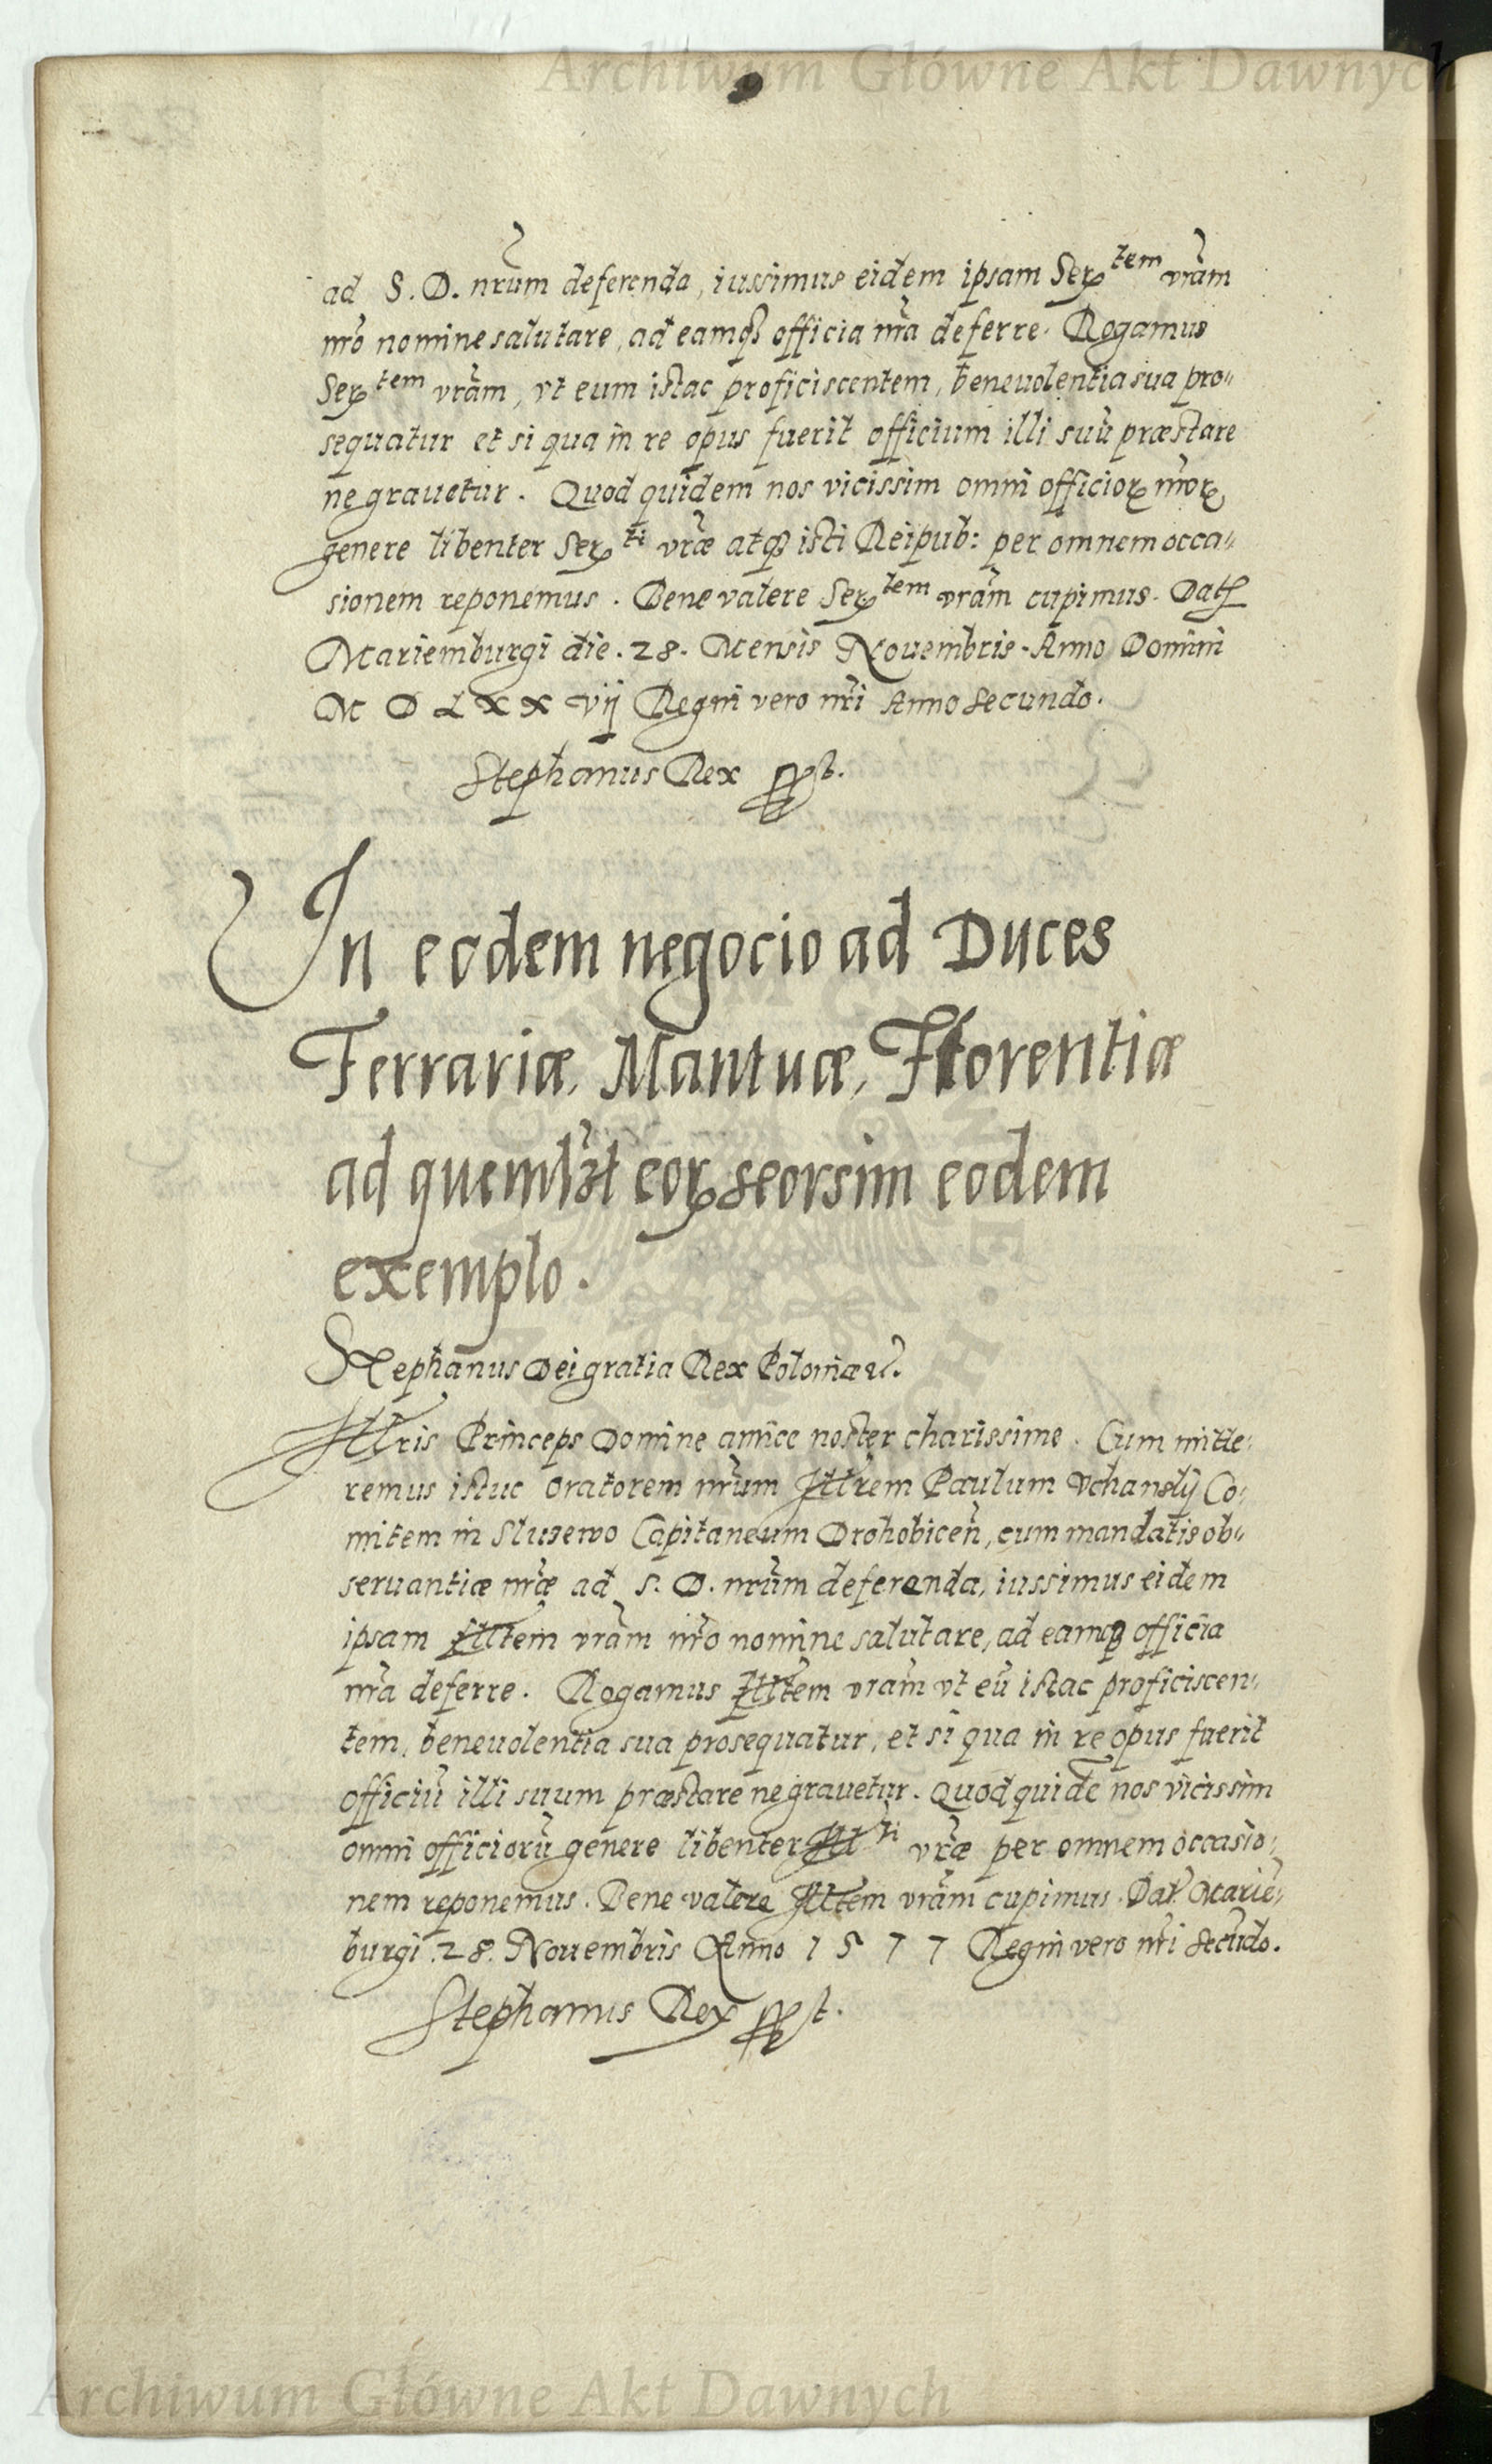 Archiwum Główne Akt Dawnych
ad S. D. nr̃um deferenda, iussimus eidem ipsam Ser^tem vrãm
nrõ nomine salutare, ad eamq₃ officia nrã deferre. Rogamus
Ser^tem vrãm, vt eum istac proficiscentem, beneuolentia sua pro"
sequatur et si qua in re opus fuerit officium illi suũ præstare
ne grauetur. Quod quidem nos vicissim omni officioꝝ nr̃oꝝ
genere libenter Ser^ti vrãe atq₃ isti Reipub: per omnem occa"
sionem reponemus. Bene valere Ser^tem vrãm cupimus. Dat̃
Mariemburgi die. 28. Mensis Nouembris. Anno Domini
M D L X X vij Regni vero nrĩ Anno Secundo.
Stephanus Rex sst.
In eodem negocio ad Duces
Ferrariæ, Mantuæ, Florentiæ
ad quemlꝫt eoꝝ seorsim eodem
exemplo.
Stephanus Dei gratia Rex Poloniæ ꝛc̃.
Illris Princeps Domine amice noster charissime. Cum mitte:
remus istuc oratorem nr̃um Illr̃em Paulum Vchanskij Co:
mitem in Slusewo Capitaneum Drohobiceñ, cum mandatis ob"
seruantiæ nrãe ad S. D. nr̃um deferenda, iussimus eidem
ipsam Illtem vrãm nrõ nomine salutare, ad eamq₃ officia
nrã deferre. Rogamus Illtem vrãm vt eũ istac proficiscen"
tem, beneuolentia sua prosequatur, et si qua in re opus fuerit
officiũ illi suum præstare ne grauetur. Quod quidẽ nos vicissim
omni officiorũ genere libenter Ill^ti vrãe per omnem occasio"
nem reponemus. Bene valere Illtem vrãm cupimus. Dat̃ Mariẽ"
burgi. 28. Nouembris Anno 1577 Regni vero nrĩ Secũdo.
Stephanus Rex sst.
Archiwum Główne Akt Dawnych